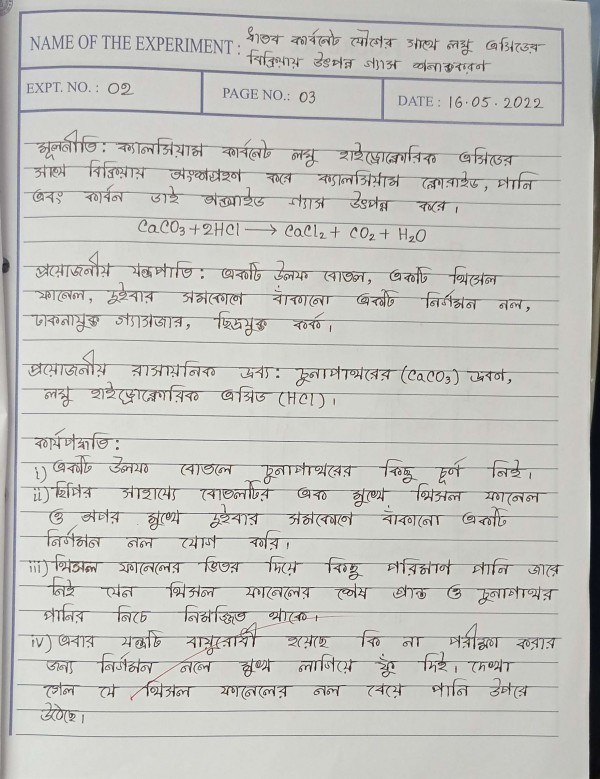 NAME OF THE EXPERIMENT : ধাতব কার্বনেট যৌগের সাথে লঘু এসিডের
বিক্রিয়ায় উৎপন্ন গ্যাস শনাক্তকরণ
EXPT. NO. : 02
PAGE NO.: 03
DATE : 16.05.2022
মূলনীতি: ক্যালসিয়াম কার্বনেট লঘু হাইড্রোক্লোরিক এসিডের
সাথে বিক্রিয়ায় অংশগ্রহণ করে ক্যালসিয়াম ক্লোরাইড, পানি
এবং কার্বন ডাই অক্সাইড গ্যাস উৎপন্ন করে।
CaCO₃ + 2HCl → CaCl₂ + CO₂ + H₂O
প্রয়োজনীয় যন্ত্রপাতি: একটি উলফ বোতল, একটি থিসেল
ফানেল, দুইবার সমকোণে বাঁকানো একটি নির্গমন নল,
ঢাকনাযুক্ত গ্যাসজার, ছিদ্রযুক্ত কর্ক।
প্রয়োজনীয় রাসায়নিক দ্রব্য: চুনাপাথরের (CaCO₃) দ্রবন,
লঘু হাইড্রোক্লোরিক এসিড (HCl)।
কার্যপদ্ধতি:
i) একটি উলফ বোতলে চুনাপাথরের কিছু চূর্ণ নিই।
ii) ছিপির সাহায্যে বোতলটির এক মুখে থিসল ফানেল
ও অপর মুখে দুইবার সমকোণে বাঁকানো একটি
নির্গমন নল যোগ করি।
iii) থিসল ফানেলের ভিতর দিয়ে কিছু পরিমাণ পানি
নিই যেন থিসল ফানেলের শেষ প্রান্ত ও চুনাপাথর
পানির নিচে নিমজ্জিত থাকে।
iv) এবার যন্ত্রটি বায়ুরোধী হয়েছে কি না পরীক্ষা করার
জন্য নির্গমন নলে মুখ লাগিয়ে ফুঁ দিই। দেখা
গেল যে থিসল ফানেলের নল বেয়ে পানি উপরে
উঠেছে।